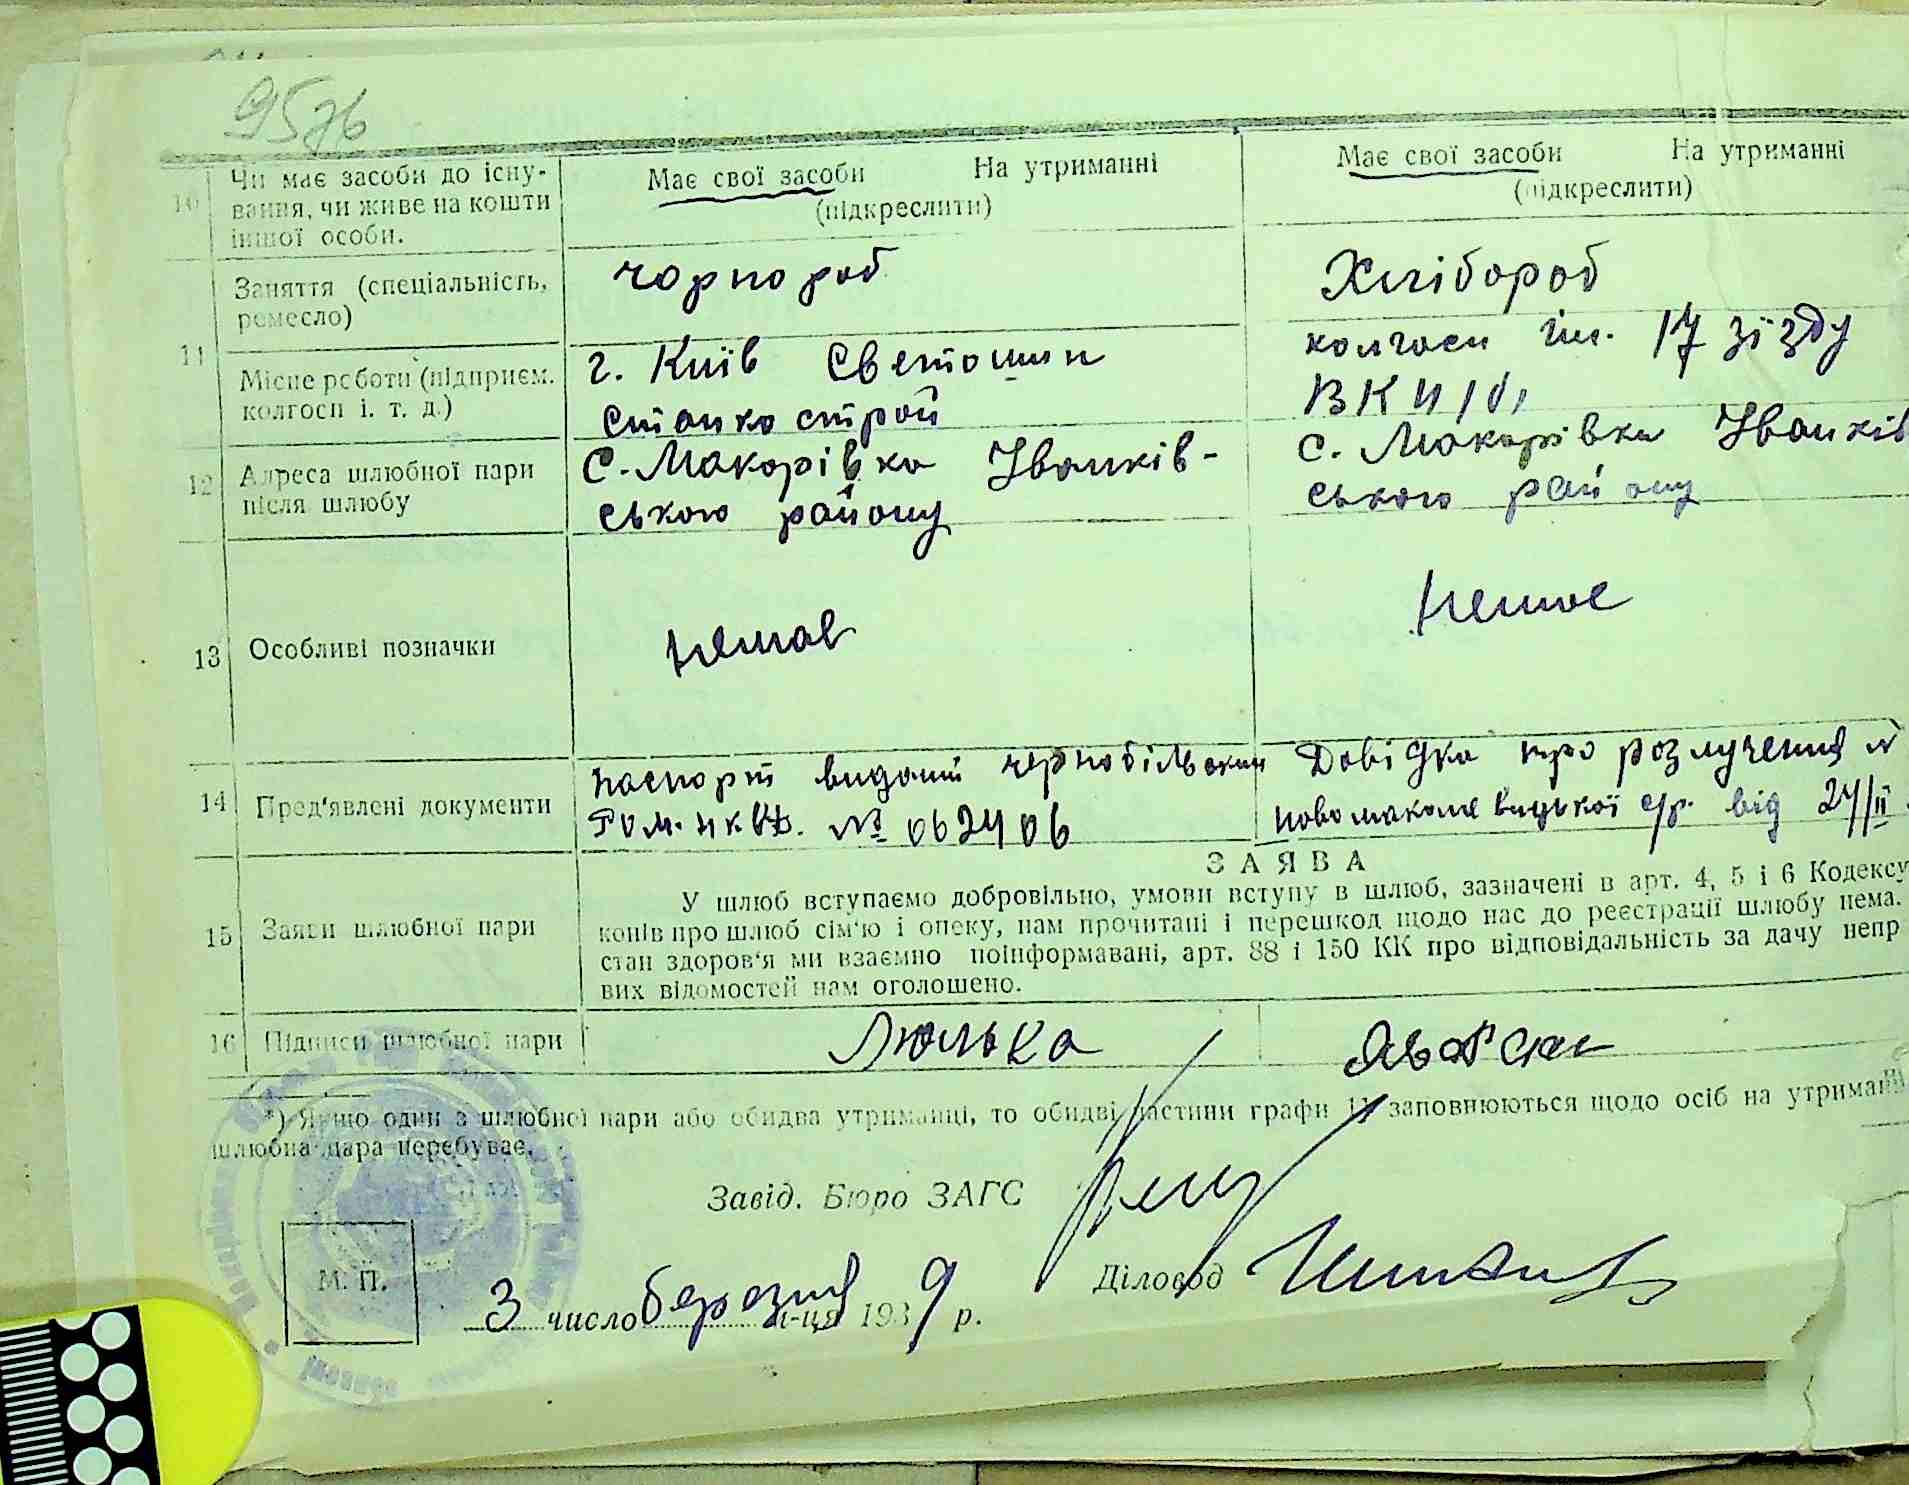 957б
10 Чи має засоби до існу- Має свої засоби На утриманні Має свої засоби На утриманні
вання, чи живе на кошти (підкреслити) (підкреслити)
іншої особи.
Заняття (спеціальність, чорнороб Хлібороб
ремесло)
11
Місце роботи (підприєм. г. Київ Светошин колгосп ім. 17 зізду
колгосп і. т. д.) Станкострой ВКП
12 Адреса шлюбної пари С. Макарівка Іванків- с. Макарівка Іванків
після шлюбу ського району ського району
13 Особливі позначки немає немає
14 Пред'явлені документи паспорт виданий чернобільским Довідка про розлучення
НКВД. № 062406 від 24/II
З А Я В А
У шлюб вступаємо добровільно, умови вступу в шлюб, зазначені в арт. 4, 5 і 6 Кодексу
15 Заяви шлюбної пари конів про шлюб сім'ю і опеку, нам прочитані і перешкод щодо нас до реєстрації шлюбу нема.
стан здоров'я ми взаємно поінформавані, арт. 88 і 150 КК про відповідальність за дачу непр
вих відомостей нам оголошено.
16 Підписи шлюбної пари Люлька
*) Якщо один з шлюбної пари або обидва утриманці, то обидві частини графи 11 заповнюються щодо осіб на утриманні
шлюбна пара перебуває.
Завід. Бюро ЗАГС
М. П.
Діловод
3 число березня м-ця 1939 р.